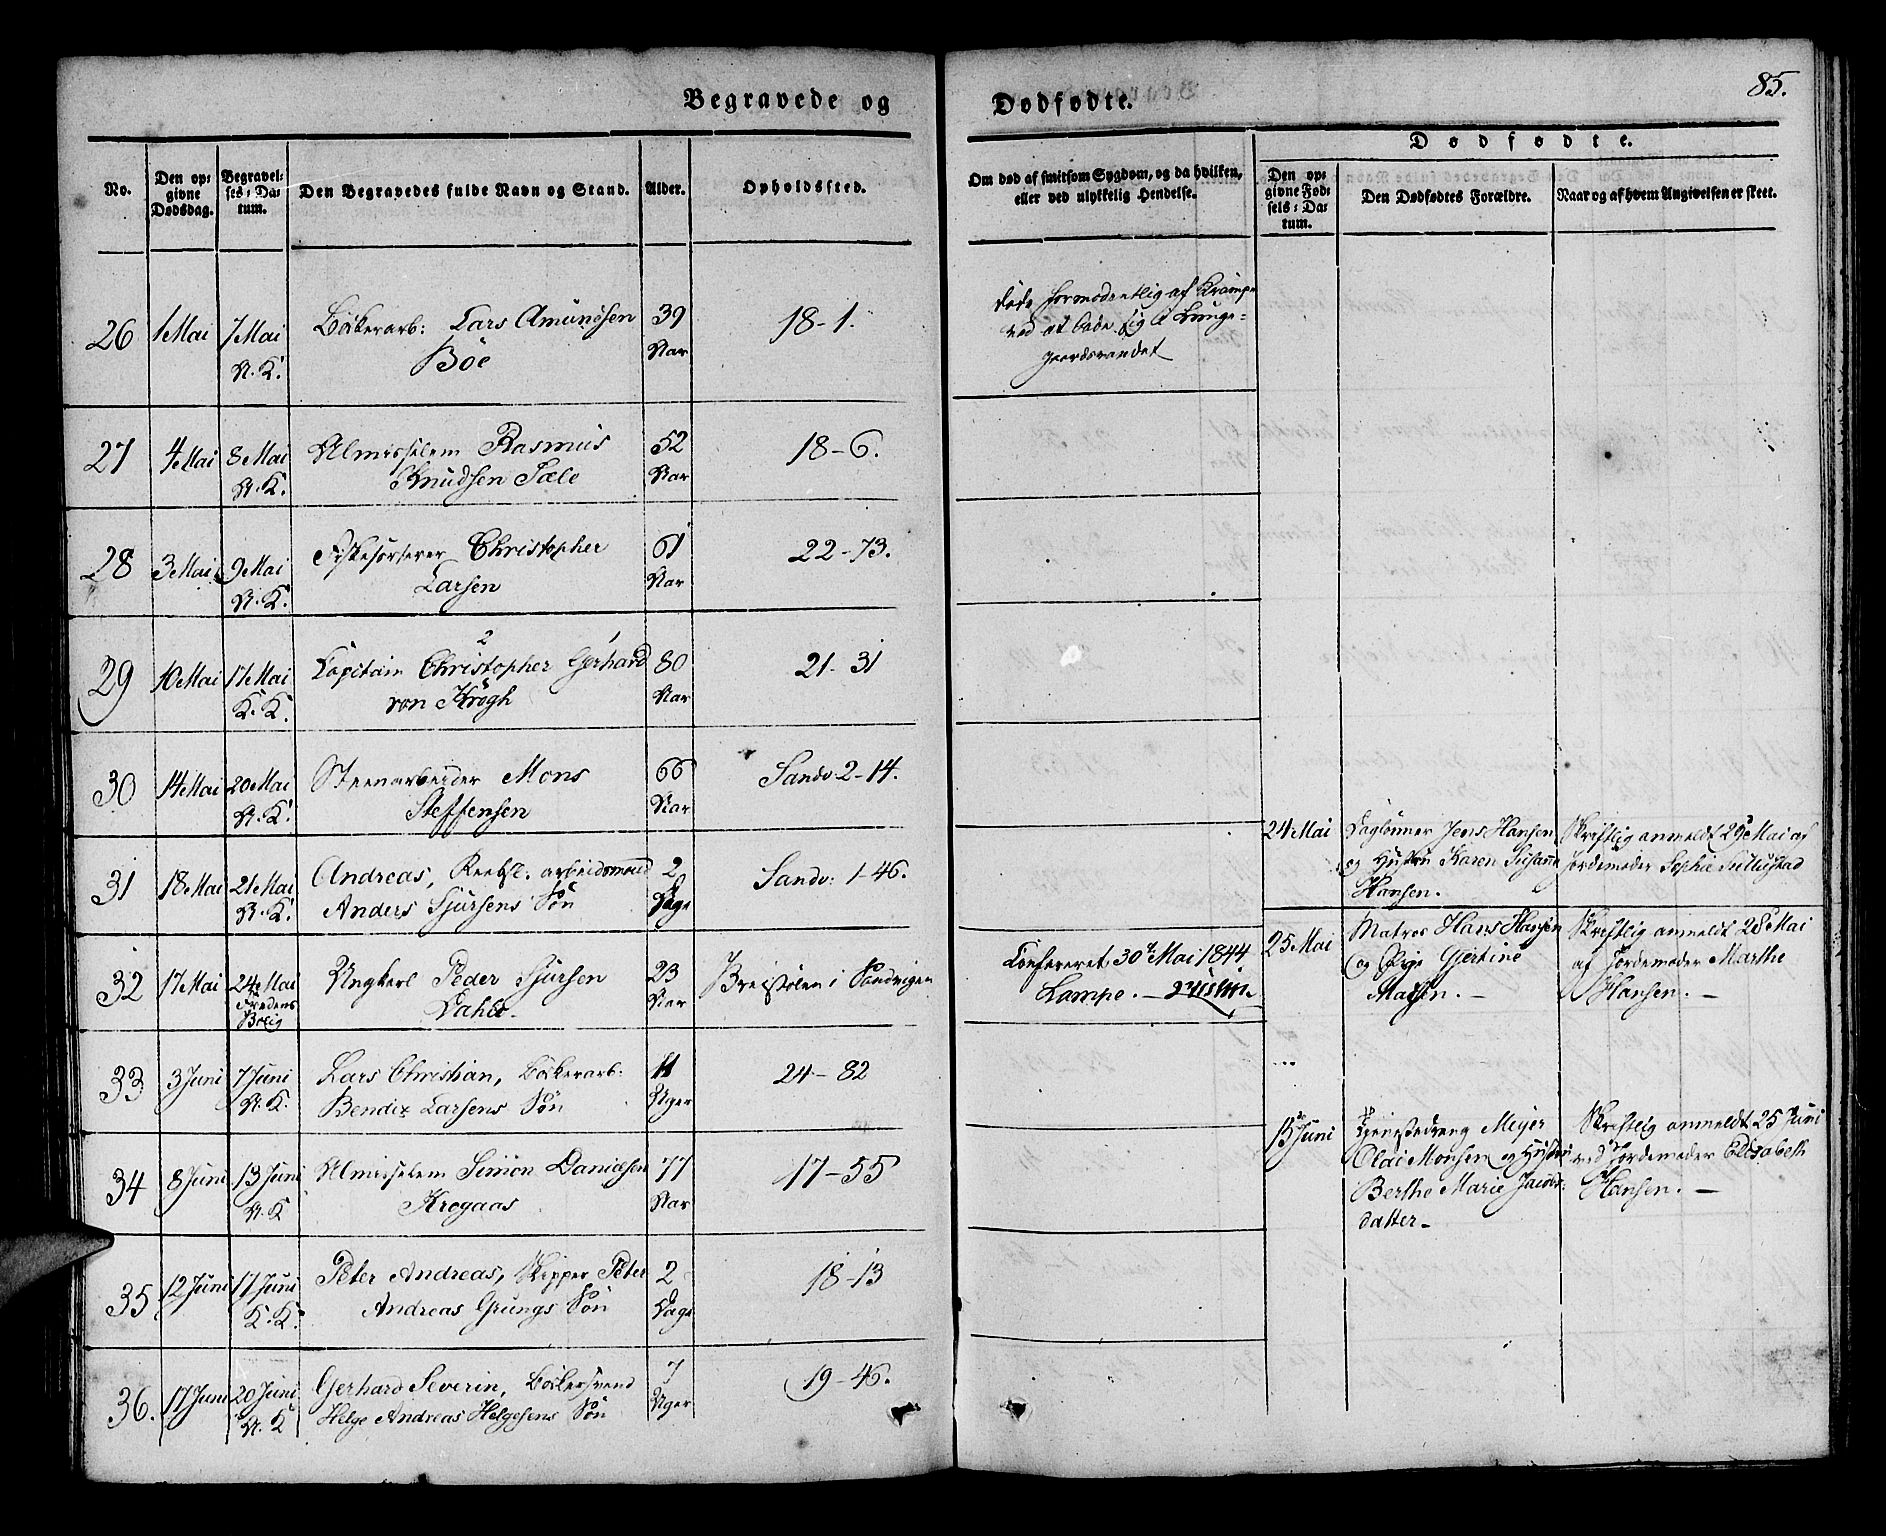 85.
Begravede og Dødfødte.
Dødfødte.
No.
Den op-
givne
Dødsdag.
Begravel-
ses-Da-
tum.
Den Begravedes fulde Navn og Stand.
Alder.
Opholdssted.
Om død af smitsom Sygdom, og da hvilken,
eller ved ulykkelig Hendelse.
Den op-
givne Fød-
sels-Da-
tum.
Den Dødfødtes Forældre.
Naar og af hvem Angivelsen er skeet.
26 1 Mai 7 Mai Bödkerarb: Lars Amundsen 39 18-1.
N. K. Böe Aar
døde formodentlig af Krampe
ved at bade sig i Lunge-
gaardsvandet
27 4 Mai 8 Mai Almisselem Rasmus 52 18-6.
N. K. Knudsen Sæle Aar
28 3 Mai 9 Mai Christopher 61 22-73.
N. K. Larsen Aar
29 10 Mai 17 Mai Capitain Christopher Gerhard 80 21-31
2 1
K. K. von Krogh Aar
30 14 Mai 20 Mai Steenarbeider Mons 66 Sandv. 2-14.
N. K. Steffensen Aar
31 18 Mai 21 Mai Andreas, arbeidsmand 2 Sandv: 1-46.
N. K. Anders Sjursens Sön Dage
32 17 Mai 24 Mai Ungkarl Peder Sjursen 23 i Sandvigen
Fredens Dahle. Aar
Bolig
30 Mai 1844
Lampe.
33 3 Juni 7 Juni Lars Christian, Bödkerarb: 11 24-82
N. K. Bendix Larsens Sön Uger
34 8 Juni 13 Juni Almisselem Simon Danielsen 77 17-55
N. K Krogaas Aar
35 12 Juni 17 Juni Peter Andreas, Skipper Peter 2 18-13
K. K. Andreas Grungs Sön Dage
36. 17 Juni 20 Juni Gerhard Severin, Bödkersvend 7 19-46.
N. K Helge Andreas Helgesens Sön Uger
24 Mai Daglönner Jens Hansen Skriftlig anmeldt 29 Mai af
og Hustru Karen Susanne Jordemoder Sophie
Hansen.
25 Mai Matros Hans Hansen Skriftlig anmeldt 28 Mai
og Pige Gjertine af Jordemoder Marthe
Madsen. Hansen.
13 Juni Meyer Skriftlig anmeldt 25 Juni
Olai Monsen og Hustru ved Jordemoder Elisabeth
Berthe Marie Jacobs- Hansen.
datter